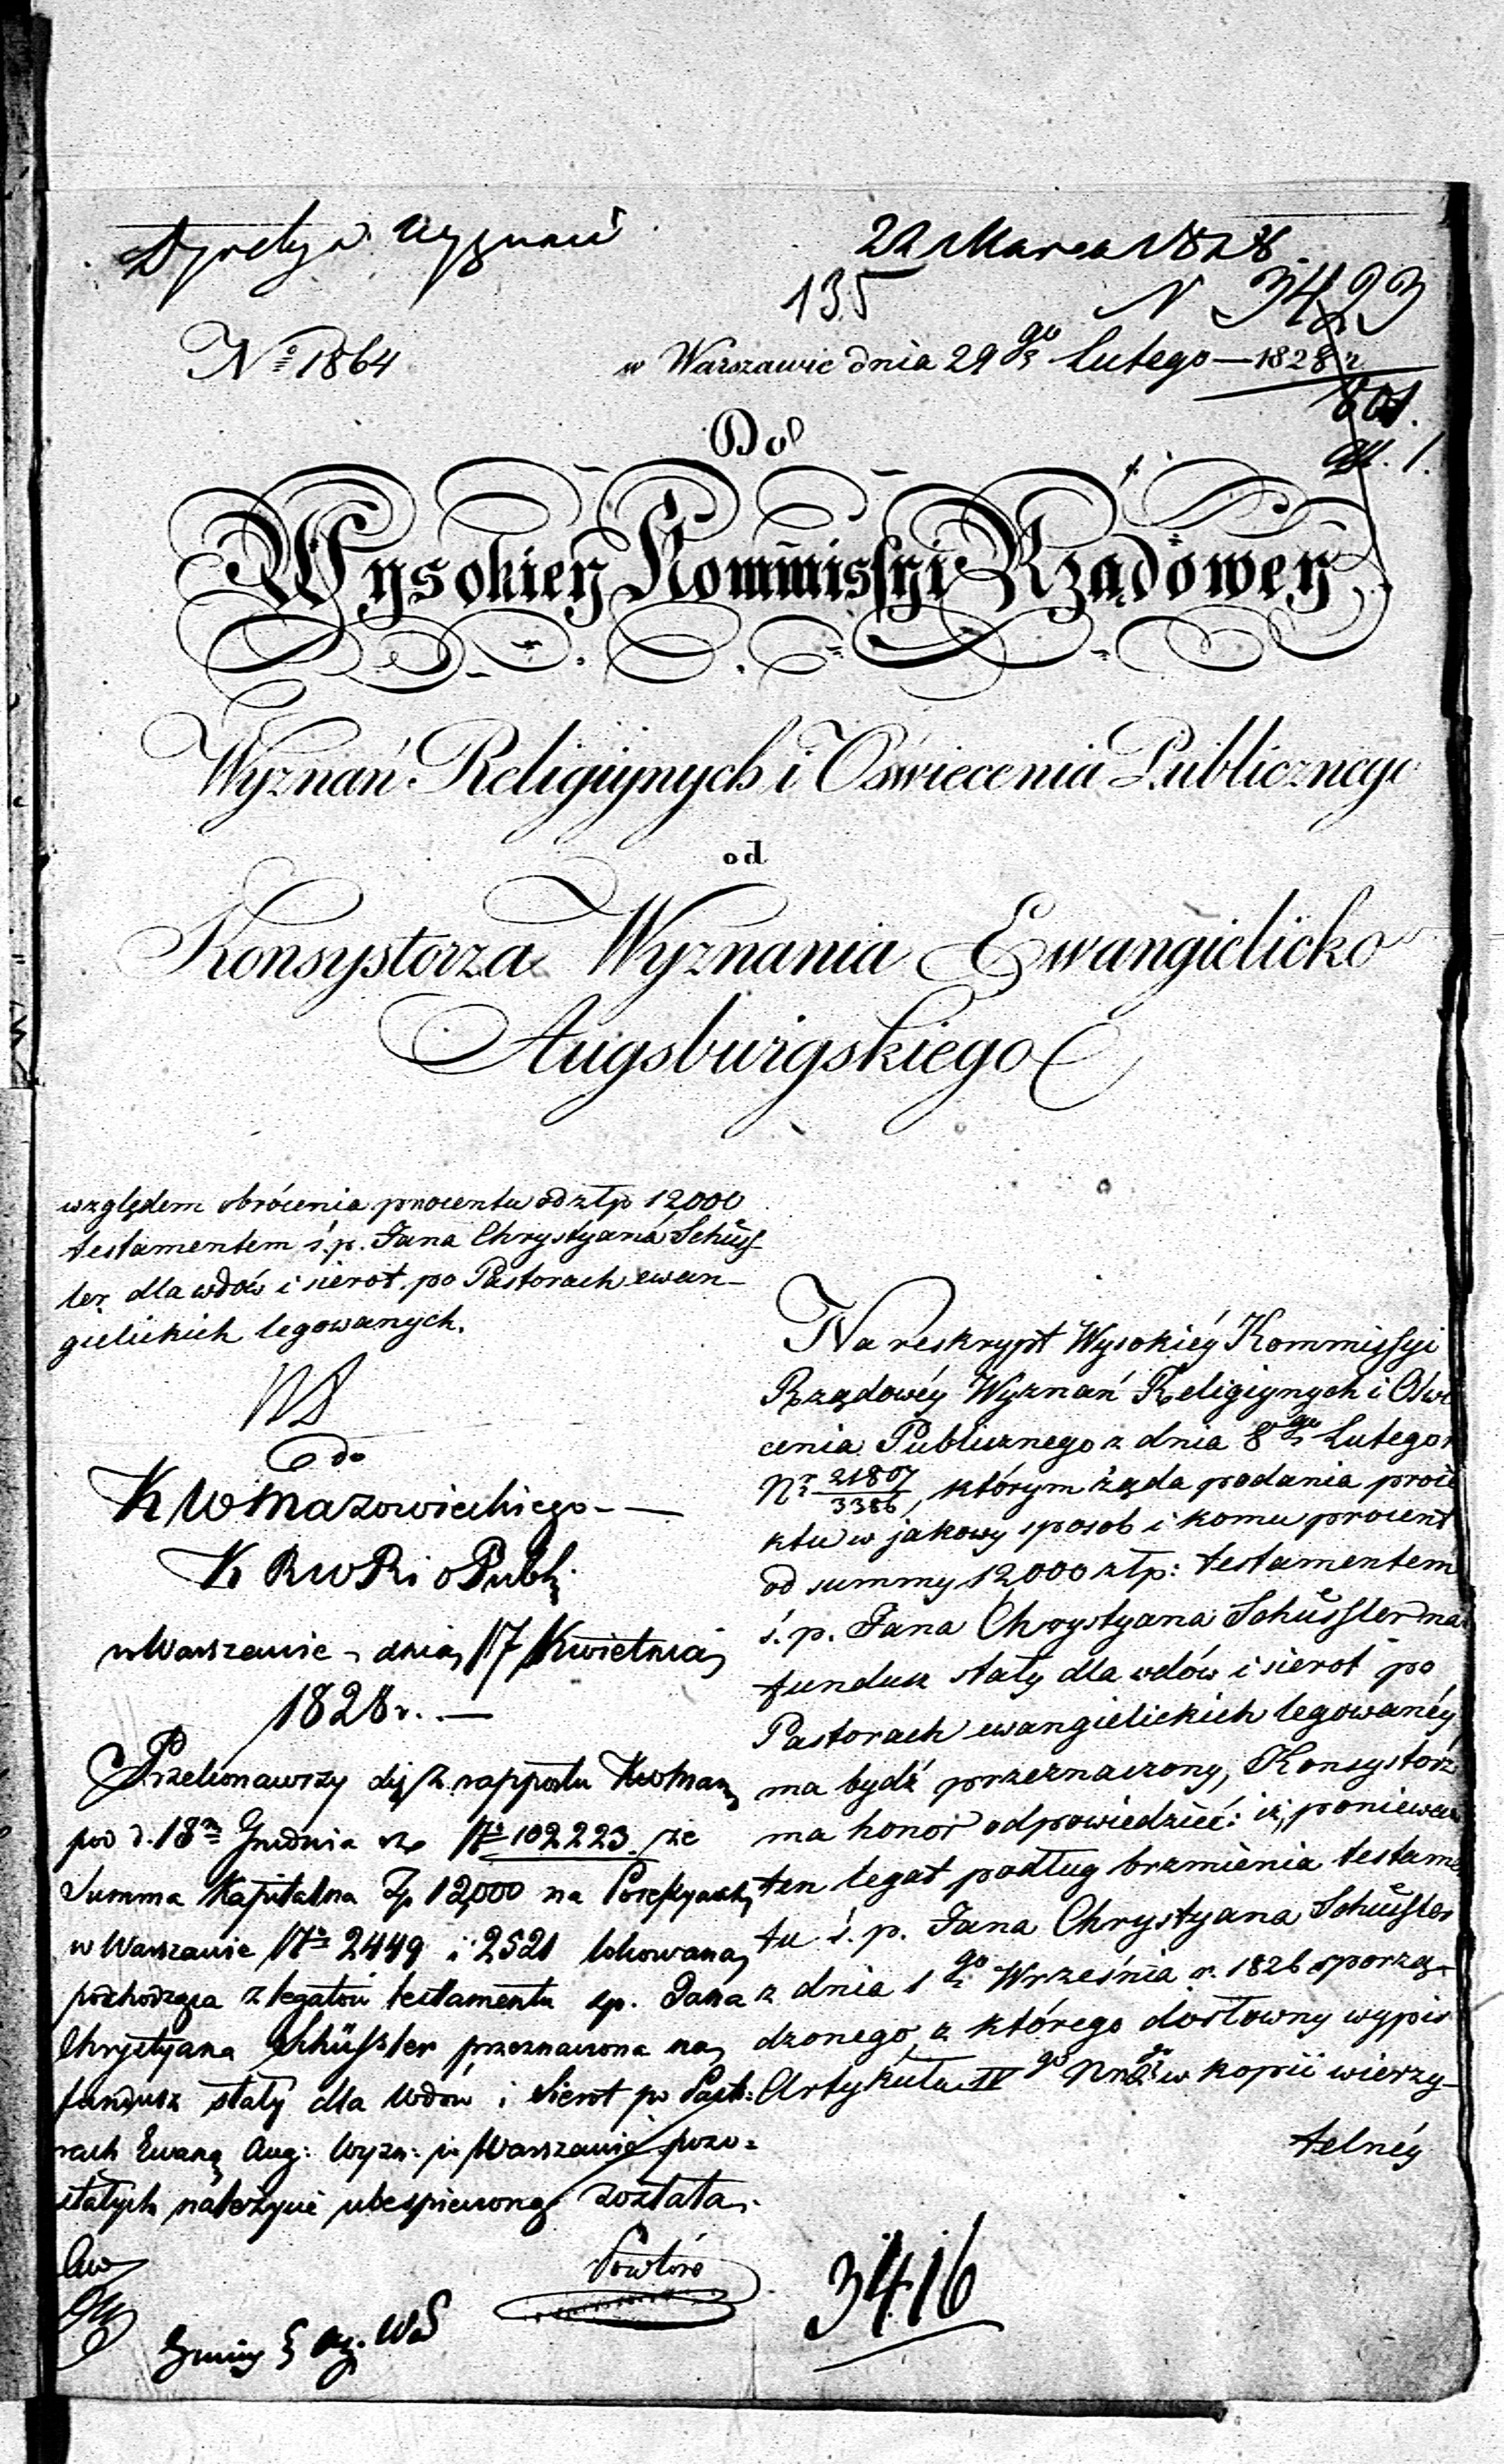 22 Marca 1828
135 N 3423
No 1864 w Warszawie dnia 29go Lutego — 1828 r.
801.
Do
Wysokiey Kommissyi Rządowey
Wyznań Religiynych i Oświecenia Publicznego
od
Konsystorza Wyznania Ewangielicko
Augsburgskiego
względem obrócenia procentu od złp 12000
testamentem ś.p. Jana Chrystyana Schüss-
ler dla wdów i sierot po Pastorach ewan-
gielickich legowanych.
Do
K W Mazowieckiego —
K R W R i O Publ:
w Warszawie dnia 17 Kwietnia
1828 r. —
Przekonawszy się z rapportu
pod d. 18m Grudnia No 102223. że
Summa Kapitalna Zp 12,000 na
w Warszawie No 2449 i 2521 lokowana,
pochodząca z legatów testamentu sp. Jana
Chrystyana Schüssler przeznaczona na
fundusz stały dla Wdów i Sierot po Pasto=
rach Ewang Aug: Wyzn: w Warszawie pozo=
stałych należycie ubespieczoną została.
Na reskrypt Wysokiéy Kommissyi
Rządowéy Wyznań Religiynych i Oświe
cenia Publicznego z dnia 8go Lutego
Nr 21807/3386, którym żąda podania proie
ktu w jakowy sposob i komu procent
od summy 12,000 złp: testamentem
ś.p. Jana Chrystyana Schüssler na
fundusz stały dla wdów i sierot po
Pastorach ewangielickich legowanéy
ma bydź przeznaczony, Konsystorz
ma honor odpowiedzieć: iż, ponieważ
ten legat podług brzmienia testamen
tu ś.p. Jana Chrystyana Schüssler
z dnia 1go Września r. 1826 sporzą-
dzonego, z którego dosłowny wypis
Artykułu IVgo w kopii wierzy-
telnéy
3416